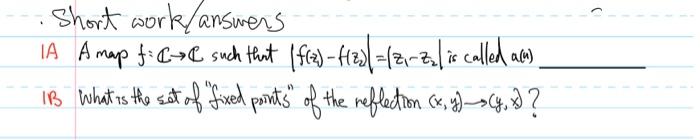 . Short work/answers
1A A map f: ℂ→ℂ such that |f(z₁)-f(z₂)|=|z₁-z₂| is called a(n) ________
1B What is the set of "fixed points" of the reflection (x, y)→(y, x)?